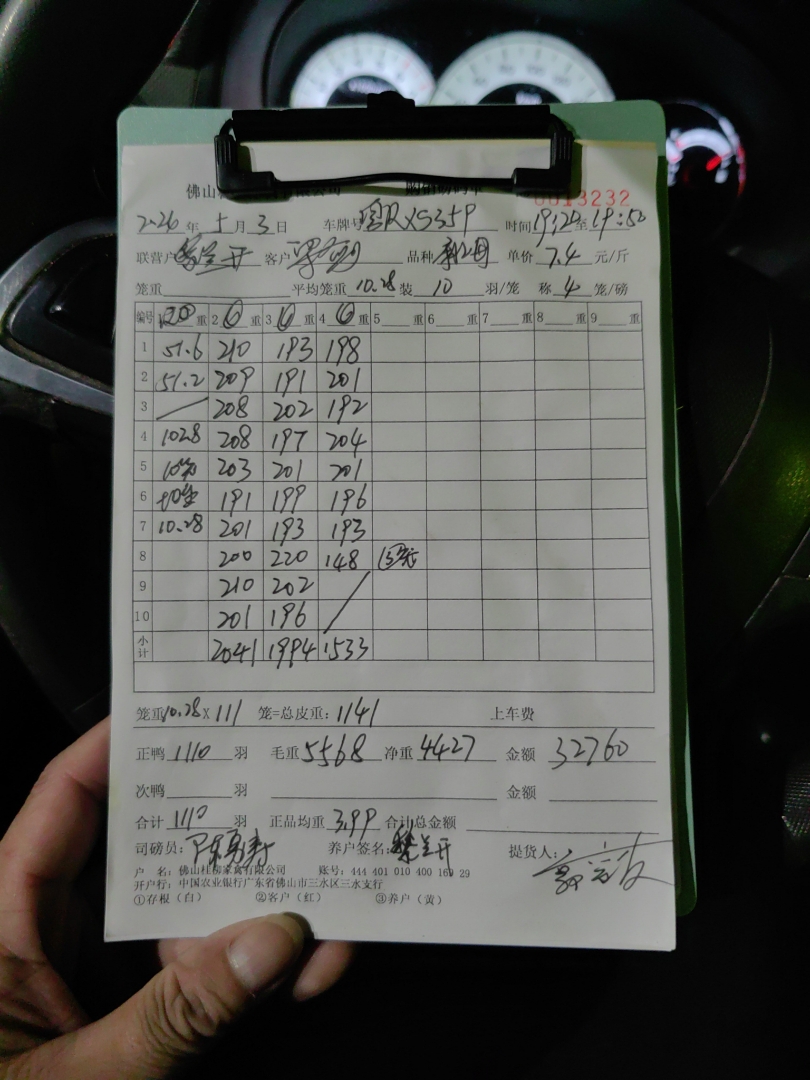 佛山
0013232
2026 年 5 月 3 日 车牌号 XS359 时间 19:20 至 19:52
联营户 开 客户 品种 单价 7.4 元/斤
笼重 平均笼重 10.28 装 10 羽/笼 称 4 笼/磅
编号 1 重 2 重 3 重 4 重 5 重 6 重 7 重 8 重 9 重
1 51.6 210 193 198
2 51.2 209 191 201
3 208 202 192
4 102.8 208 197 204
5 10 203 201 201
6 191 199 196
7 10.28 201 193 193
8 200 220 148
9 210 202
10 201 196
小计 2041 1994 1533
笼重 10.28 X 111 笼=总皮重: 1141 上车费
正鸭 1110 羽 毛重 5568 净重 4427 金额 32760
次鸭 羽 金额
合计 1110 羽 正品均重 3.99 合计总金额
司磅员: 陈勇寿 养户签名: 开 提货人:
户 名: 佛山桂柳家禽有限公司 账号: 444 401 010 400 169 29
开户行: 中国农业银行广东省佛山市三水区三水支行
①存根(白) ②客户(红) ③养户(黄)